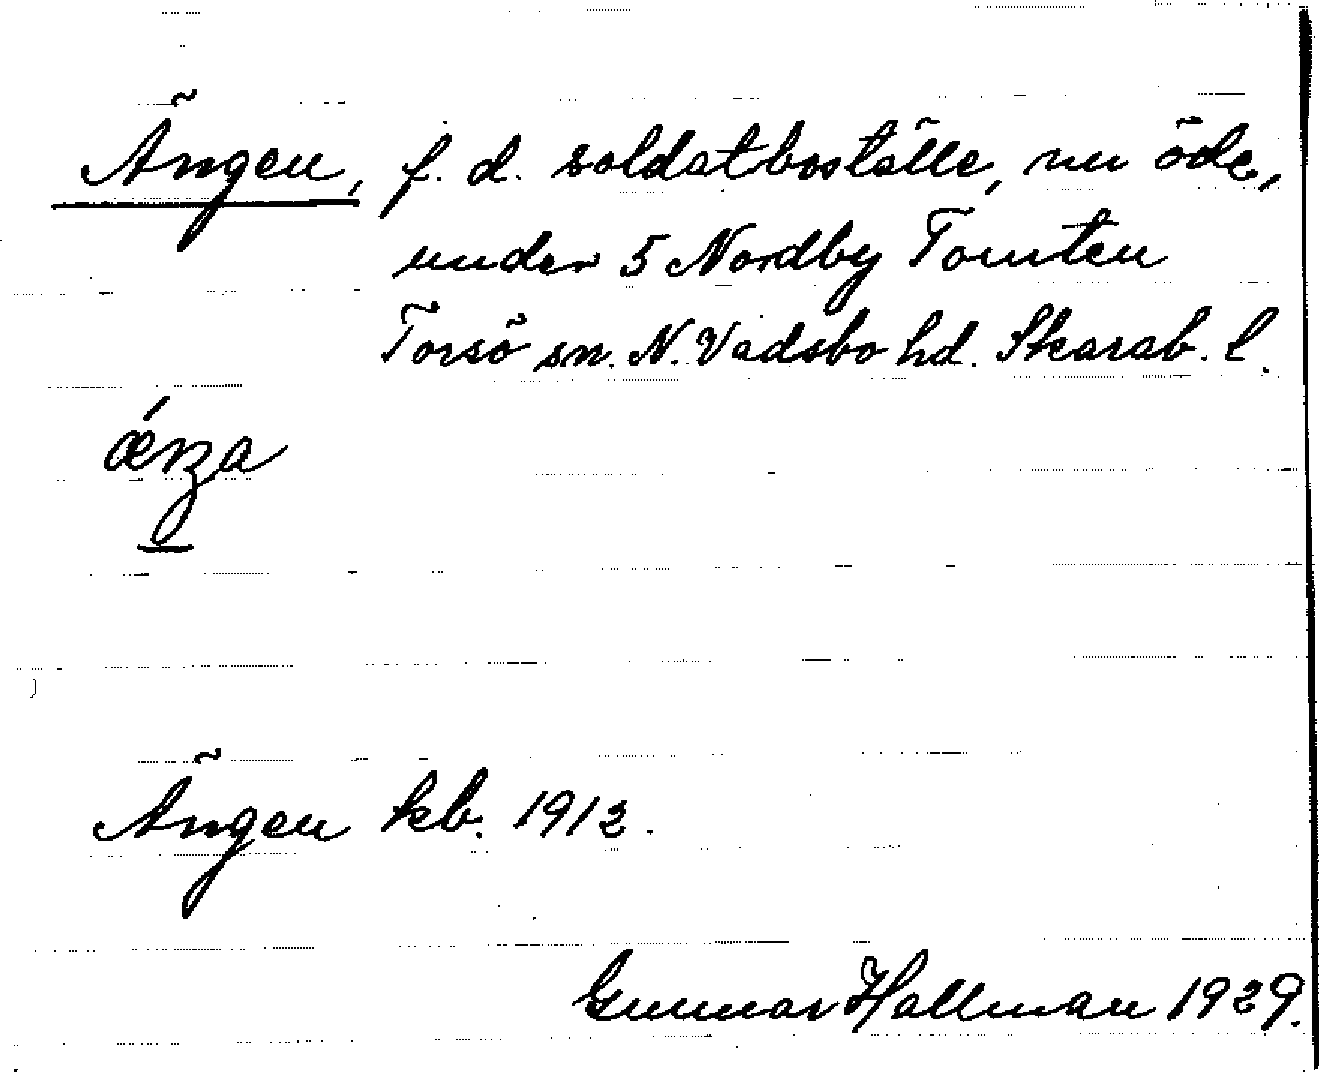 Ängen, f. d. soldatboställe, nu öde,
under 5 Nordby Tomten
Torsö sn. N. Vadsbo hd. Skarab. l.
Ängen kb. 1913.
Gunnar Hallman 1929.